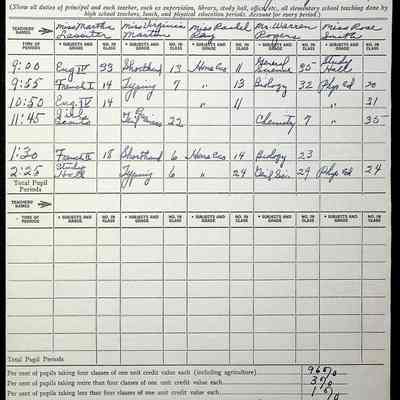 (Show all duties of principal and each teacher, such as supervision, library, study hall, office, etc., all elementary school teaching done by
high school teachers, lunch, and physical education periods. Account for every period.)
TEACHERS' NAMES Miss Martha Miss Virginia Miss Rachel Mr. Warren Miss Rose
Martin Ray Rogers Smith
TIME OF PERIODS • SUBJECTS AND GRADES NO. IN CLASS • SUBJECTS AND GRADES NO. IN CLASS • SUBJECTS AND GRADES NO. IN CLASS • SUBJECTS AND GRADES NO. IN CLASS • SUBJECTS AND GRADES NO. IN CLASS
9:00 Eng IV 93 Shorthand 13 Home Ec 11 General Science 35 Study Hall
9:55 French I 14 Typing 7 " 13 Biology 32 Phys Ed 20
10:50 Eng IV 14 " 11 31
11:45 Girls 22 Chemistry 7 35
1:30 French II 18 Shorthand 6 Home Ec 14 Biology 23
2:25 Study Hall Typing 6 " 24 Gen Sci 29 Phys Ed 24
Total Pupil
Periods
TEACHERS' NAMES
TIME OF PERIODS • SUBJECTS AND GRADES NO. IN CLASS • SUBJECTS AND GRADES NO. IN CLASS • SUBJECTS AND GRADES NO. IN CLASS • SUBJECTS AND GRADES NO. IN CLASS • SUBJECTS AND GRADES NO. IN CLASS
Total Pupil Periods
Per cent of pupils taking four classes of one unit credit value each (including agriculture) 96%
Per cent of pupils taking more than four classes of one unit credit value each 3%
Per cent of pupils taking less than four classes of one unit credit value each 1%